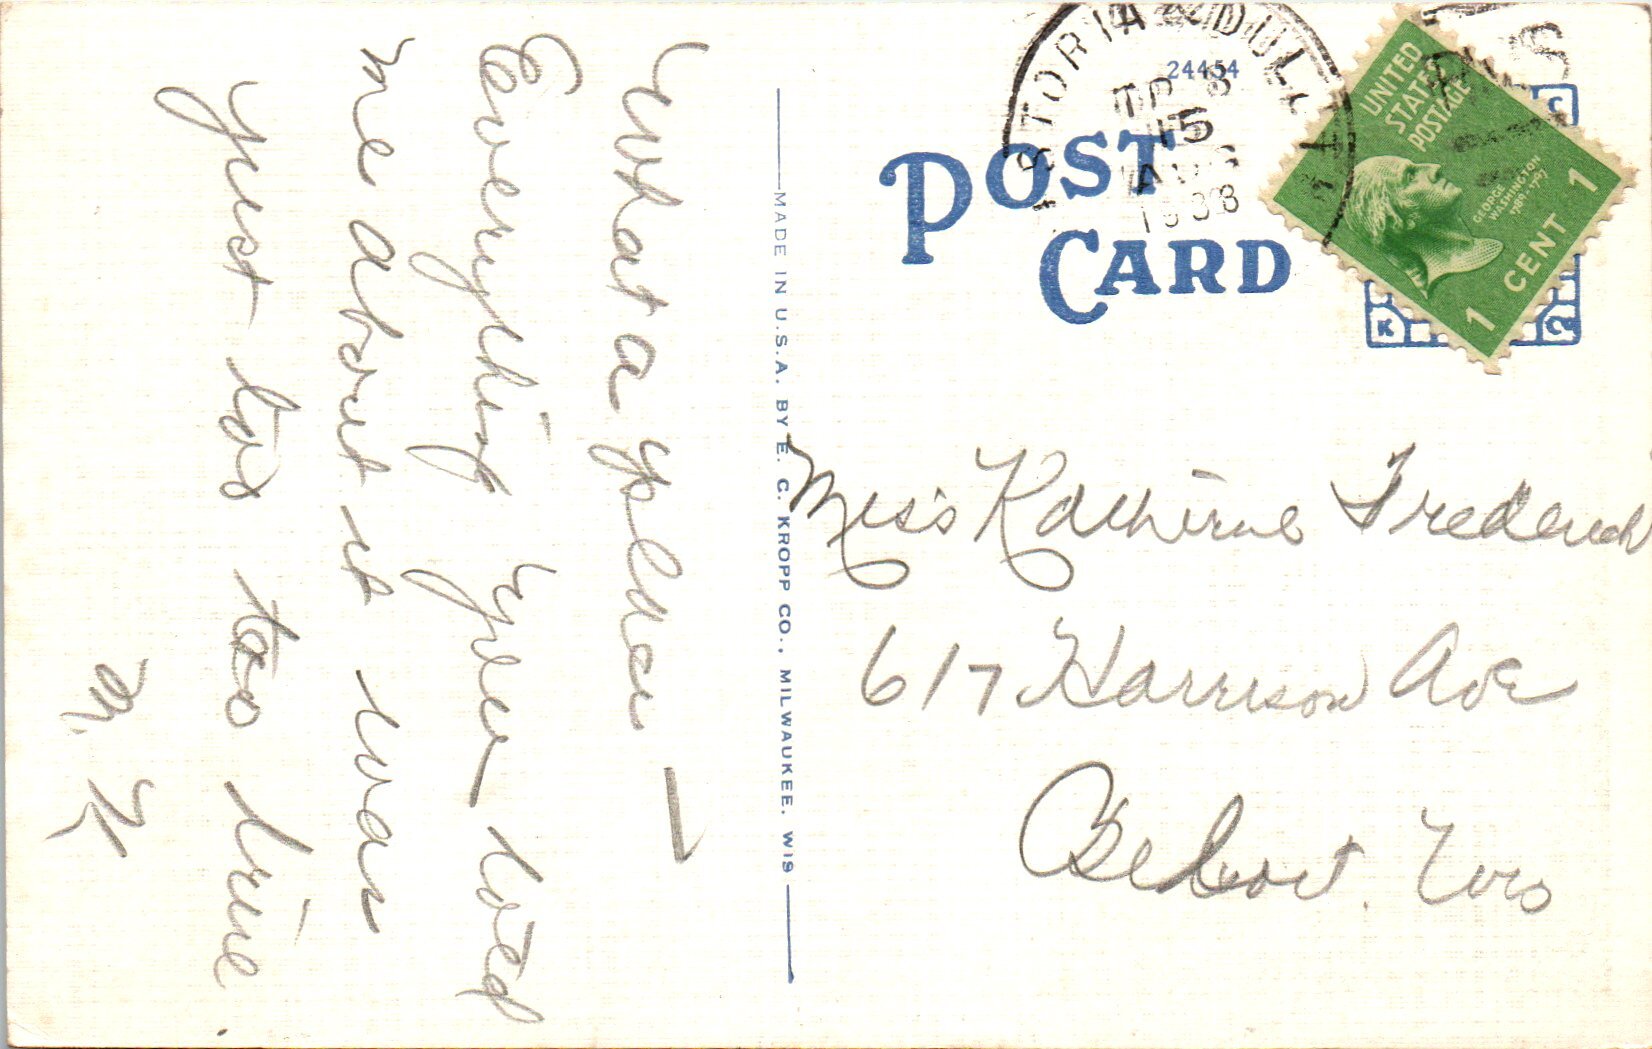 What a place —
Everything you toted
me about it was
just too too true.
M. K.
MADE IN U.S.A. BY E. C. KROPP CO., MILWAUKEE, WIS
24454
POST
CARD
TR 8
15
AUG
1938
UNITED
STATES
POSTAGE
GEORGE
WASHINGTON
1789-1797
1 CENT 1
K
C
Miss Katherine Frederick
617 Harrison Ave
Beloit. Wis